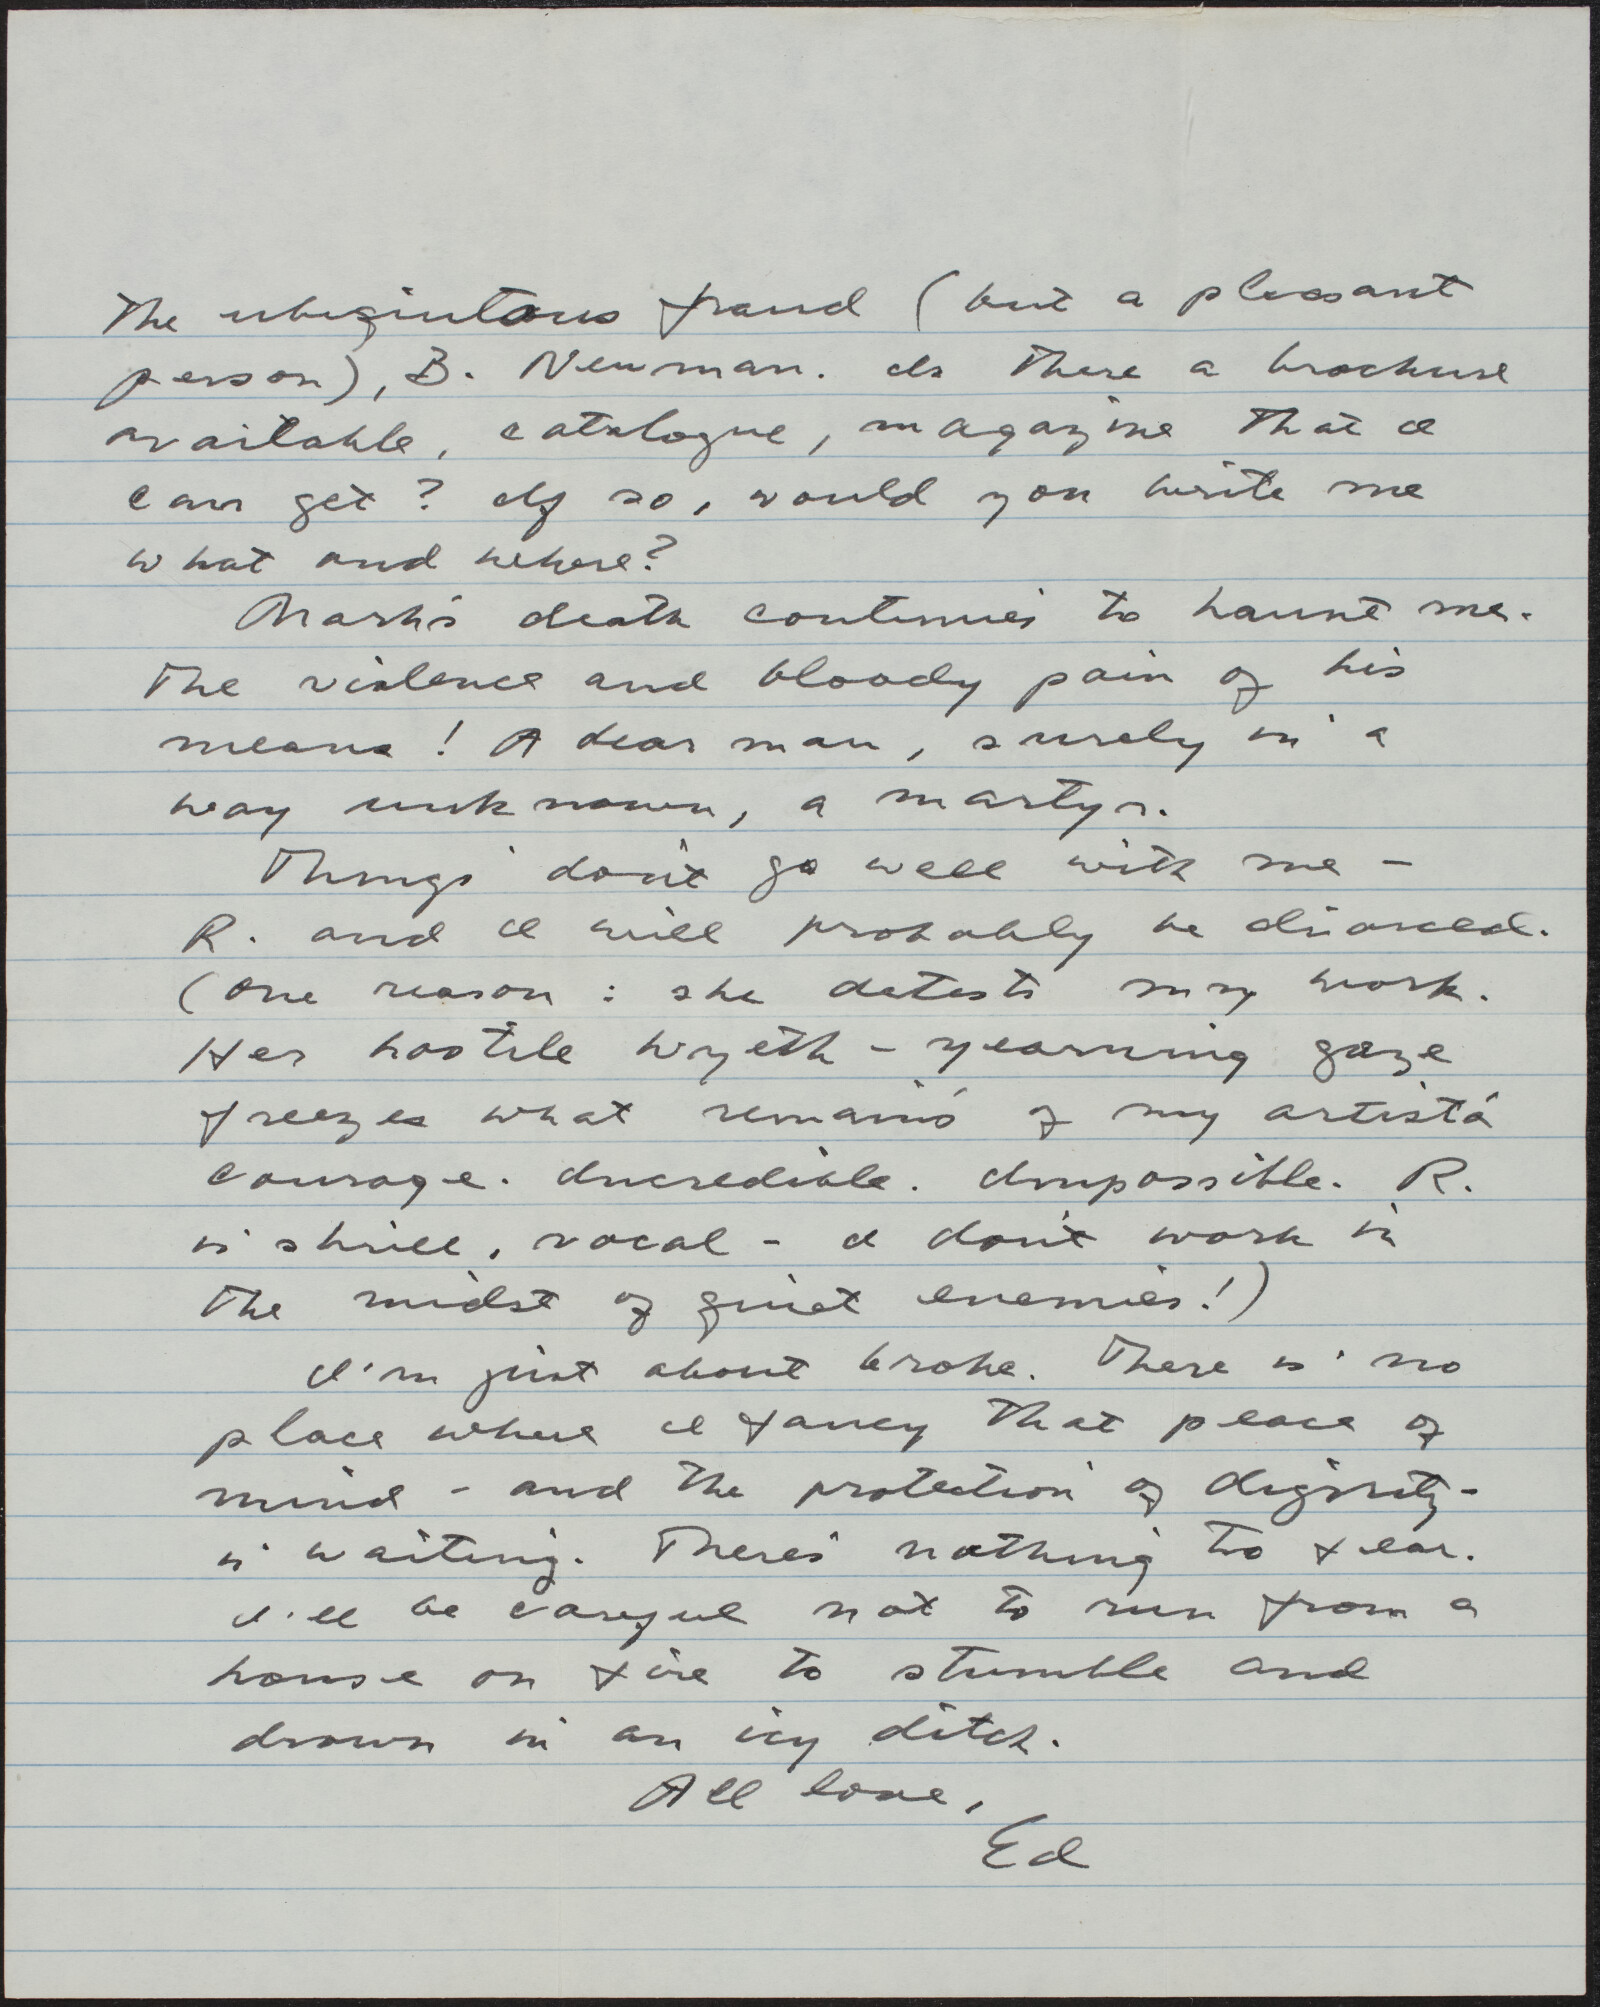 The ubiqiutous fraud (but a pleasant
person), B. Newman. Is there a brochure
available, catalogue, magazine that I
can get? If so, would you write me
what and where?
Mark's death continues to haunt me.
The violence and bloody pain of his
means! A dear man, surely in a
way unknown, a martyr.
Things don't go well with me -
R. and I will probably be divorced.
(One reason: she detests my work.
Her hostile Wyeth-yearning gaze
freezes what remains of my artist's
courage. Incredible. Impossible. R.
is shrill, vocal - I don't work in
the midst of quiet enemies!)
I'm just about broke. There is no
place where I fancy that peace of
mind - and the protection of dignity -
is waiting. There's nothing to fear.
I'll be careful not to run from a
house on fire to stumble and
drown in an icy ditch.
All love,
Ed